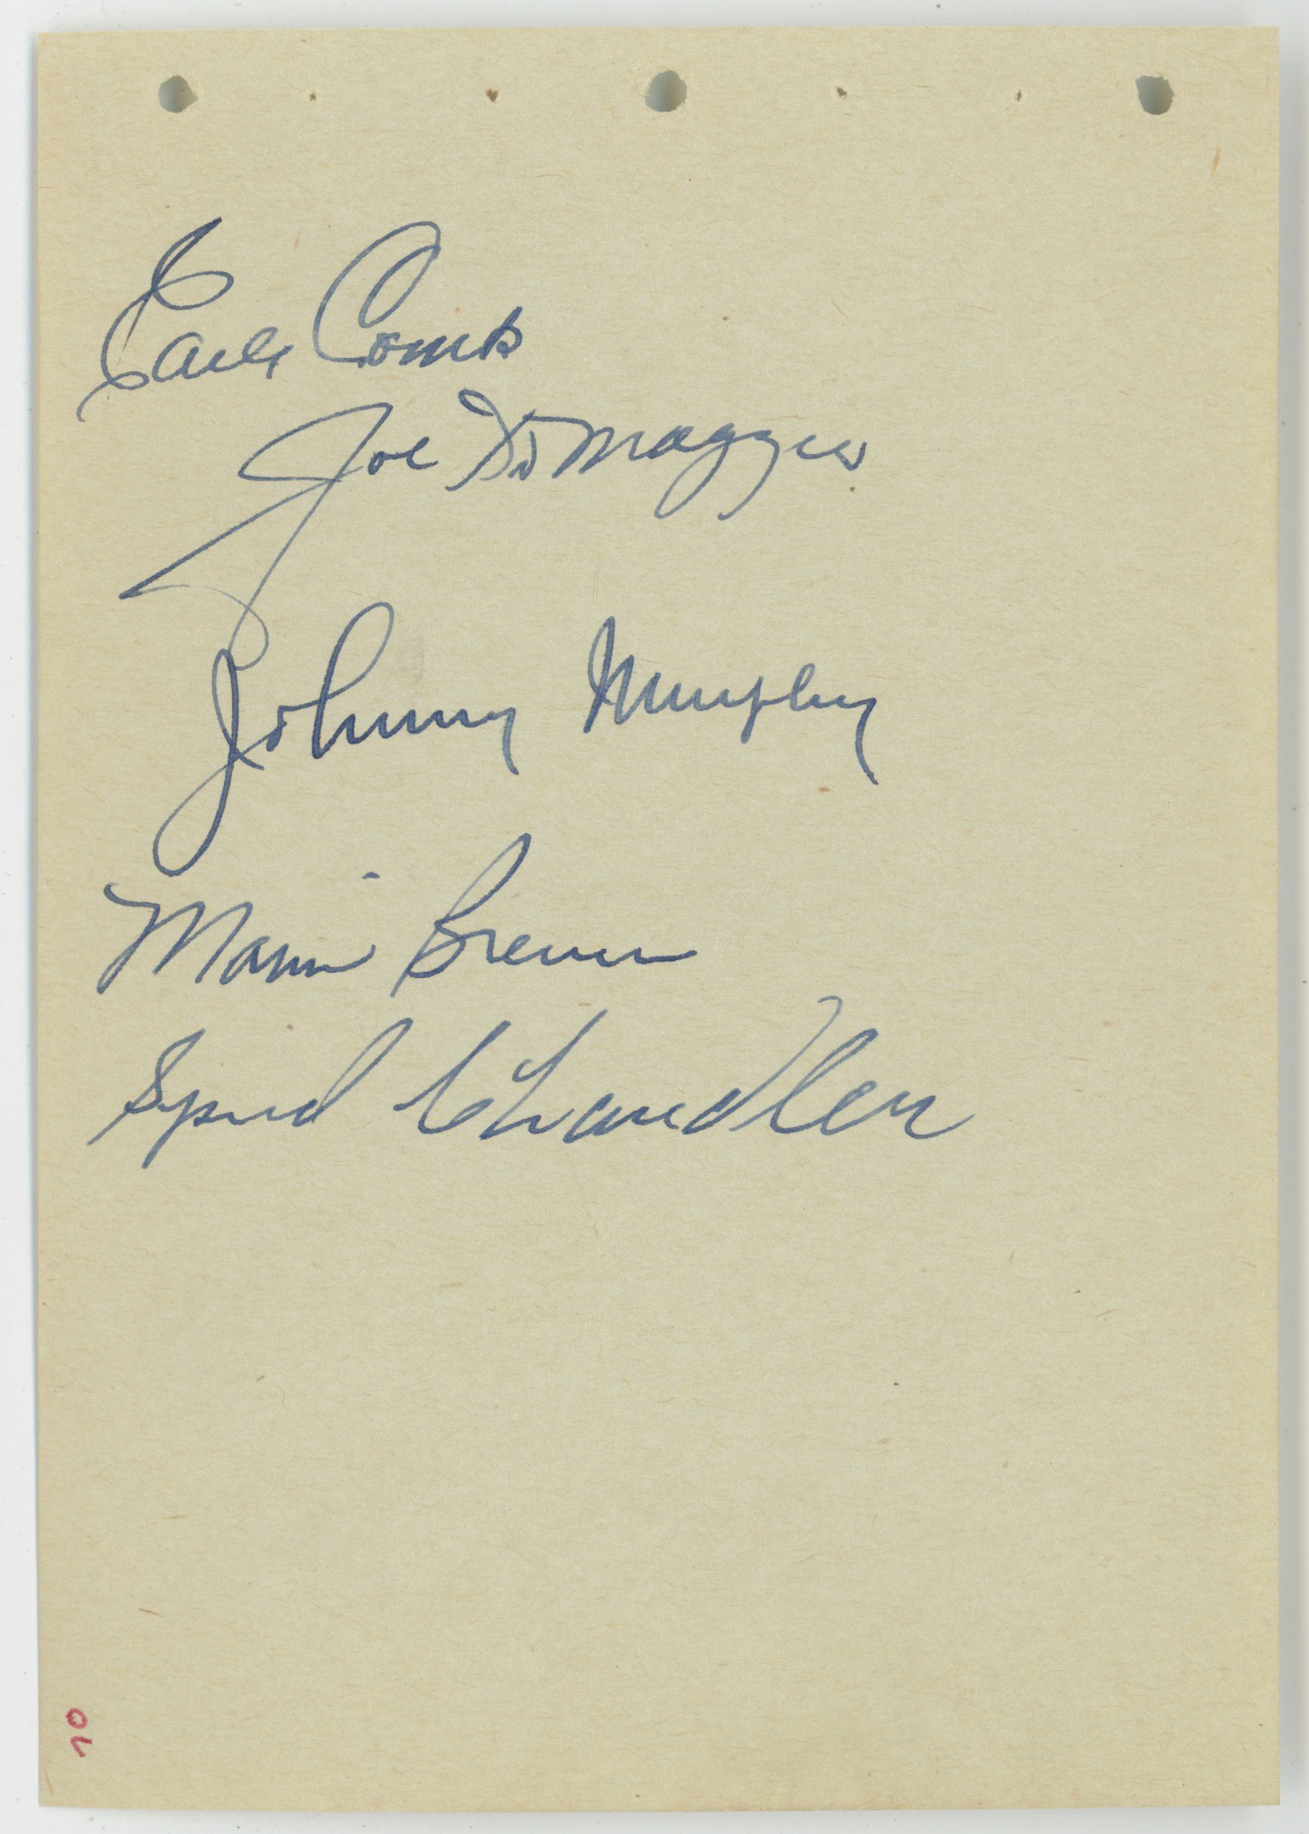 Earle Combs
Joe DiMaggio
Johnny Murphy
Marvin Breuer
Spud Chandler
70